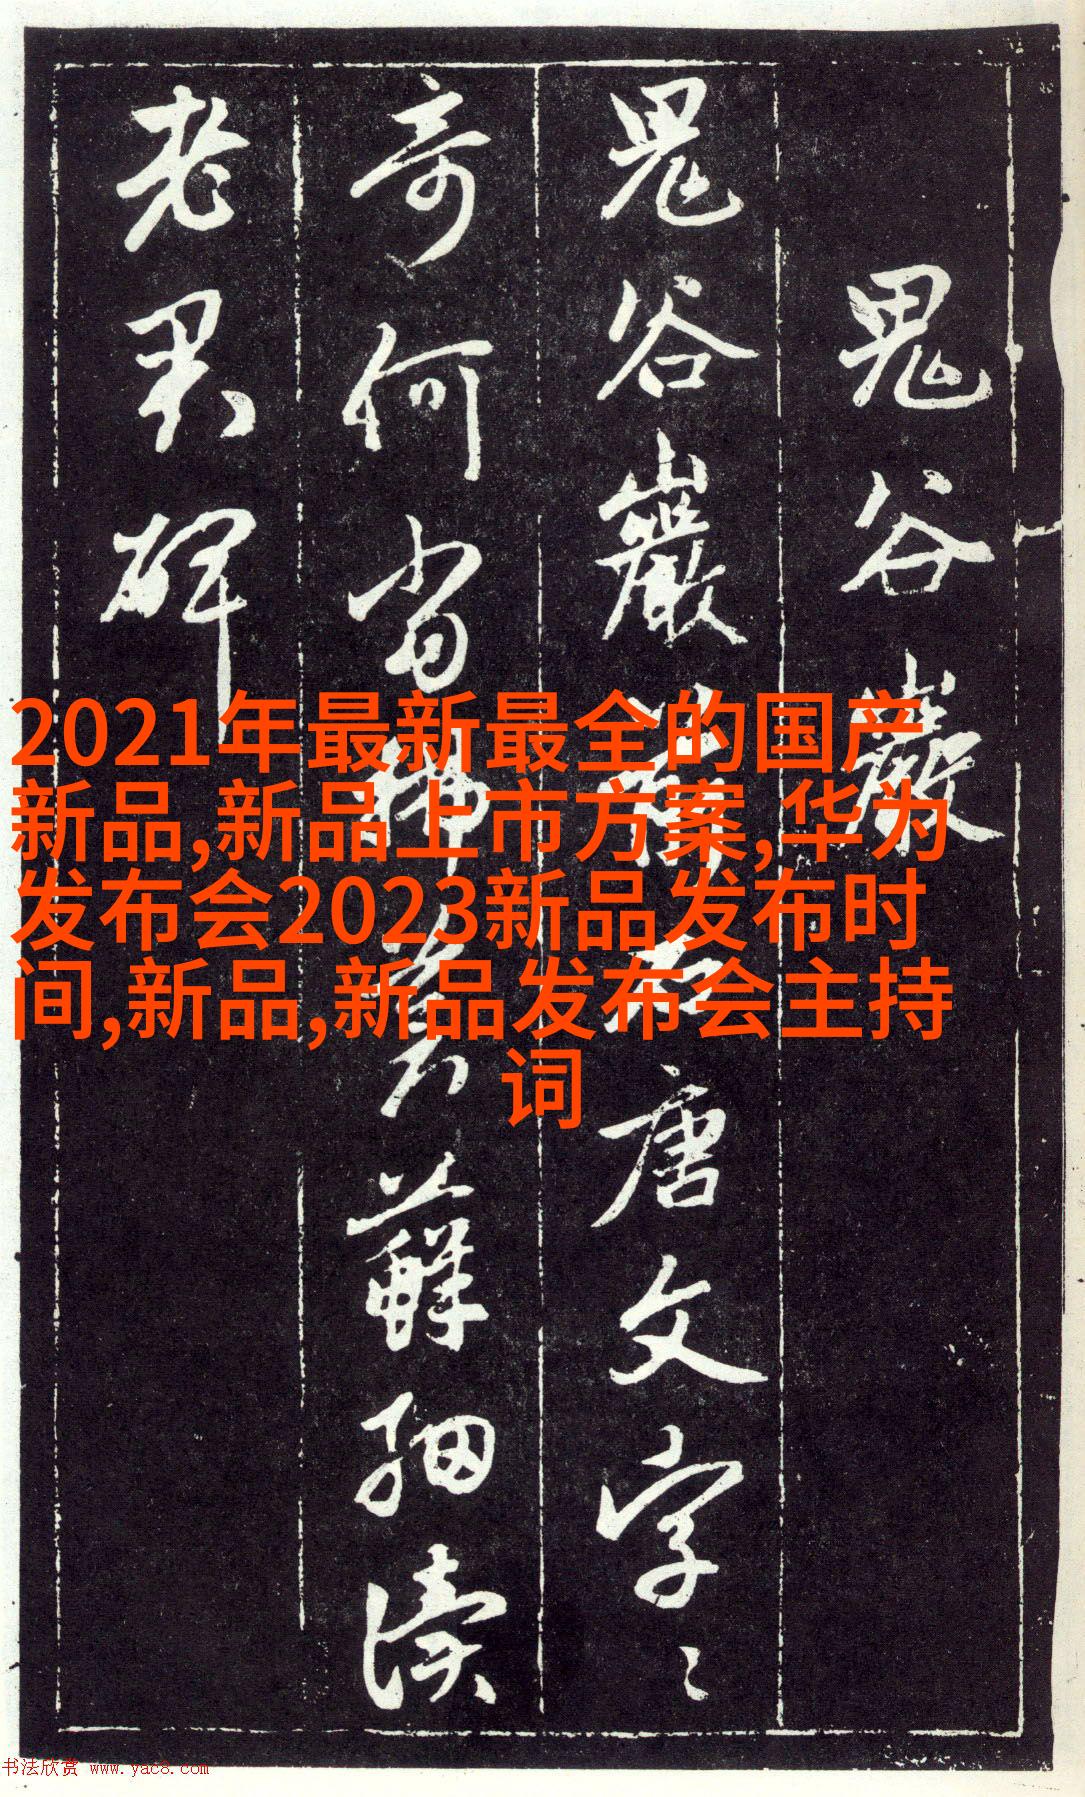 鬼谷巖
鬼谷巖前石唐文字〻
奇何當掃苔蘚細讀
老君碑
2021年最新最全的国产
新品,新品上市方案,华为
发布会2023新品发布时
间,新品,新品发布会主持
词
书法欣赏 www.yac8.com